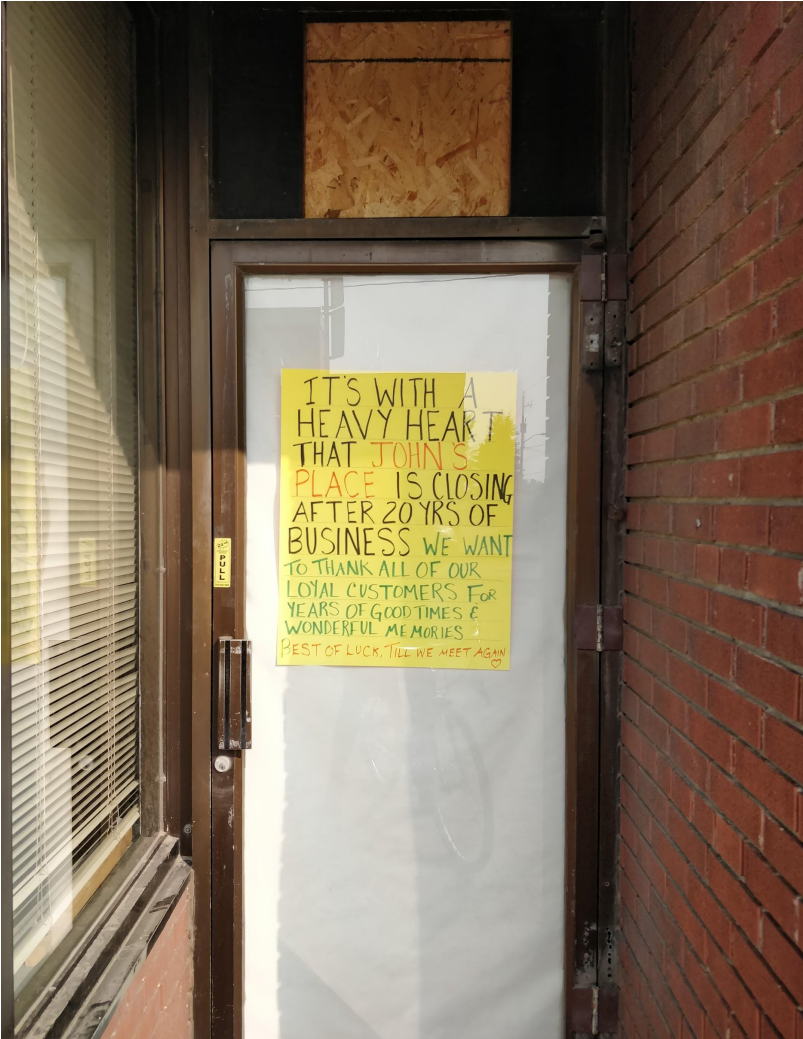 IT'S WITH A
HEAVY HEART
THAT JOHN'S
PLACE IS CLOSING
AFTER 20 YRS OF
BUSINESS WE WANT
TO THANK ALL OF OUR
LOYAL CUSTOMERS FOR
YEARS OF GOOD TIMES &
WONDERFUL MEMORIES
BEST OF LUCK, TILL WE MEET AGAIN
PULL